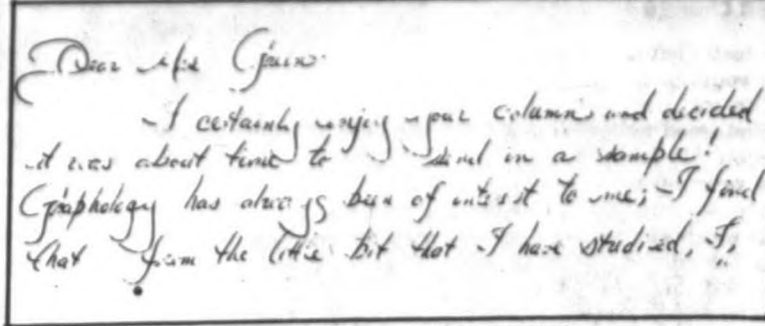 Dear Mrs Green:
I certainly enjoy your column and decided
it was about time to send in a sample!
Graphology has always been of interest to me; I find
that from the little bit that I have studied, I,